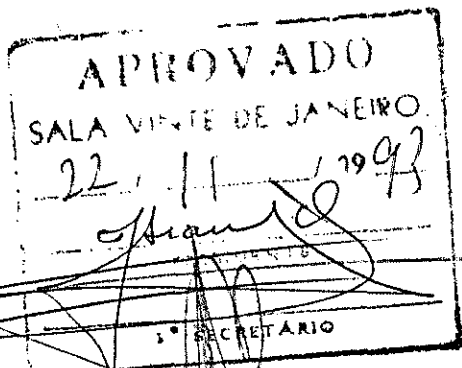 APROVADO
SALA VINTE DE JANEIRO
22 / 11 / 1993
1º SECRETÁRIO